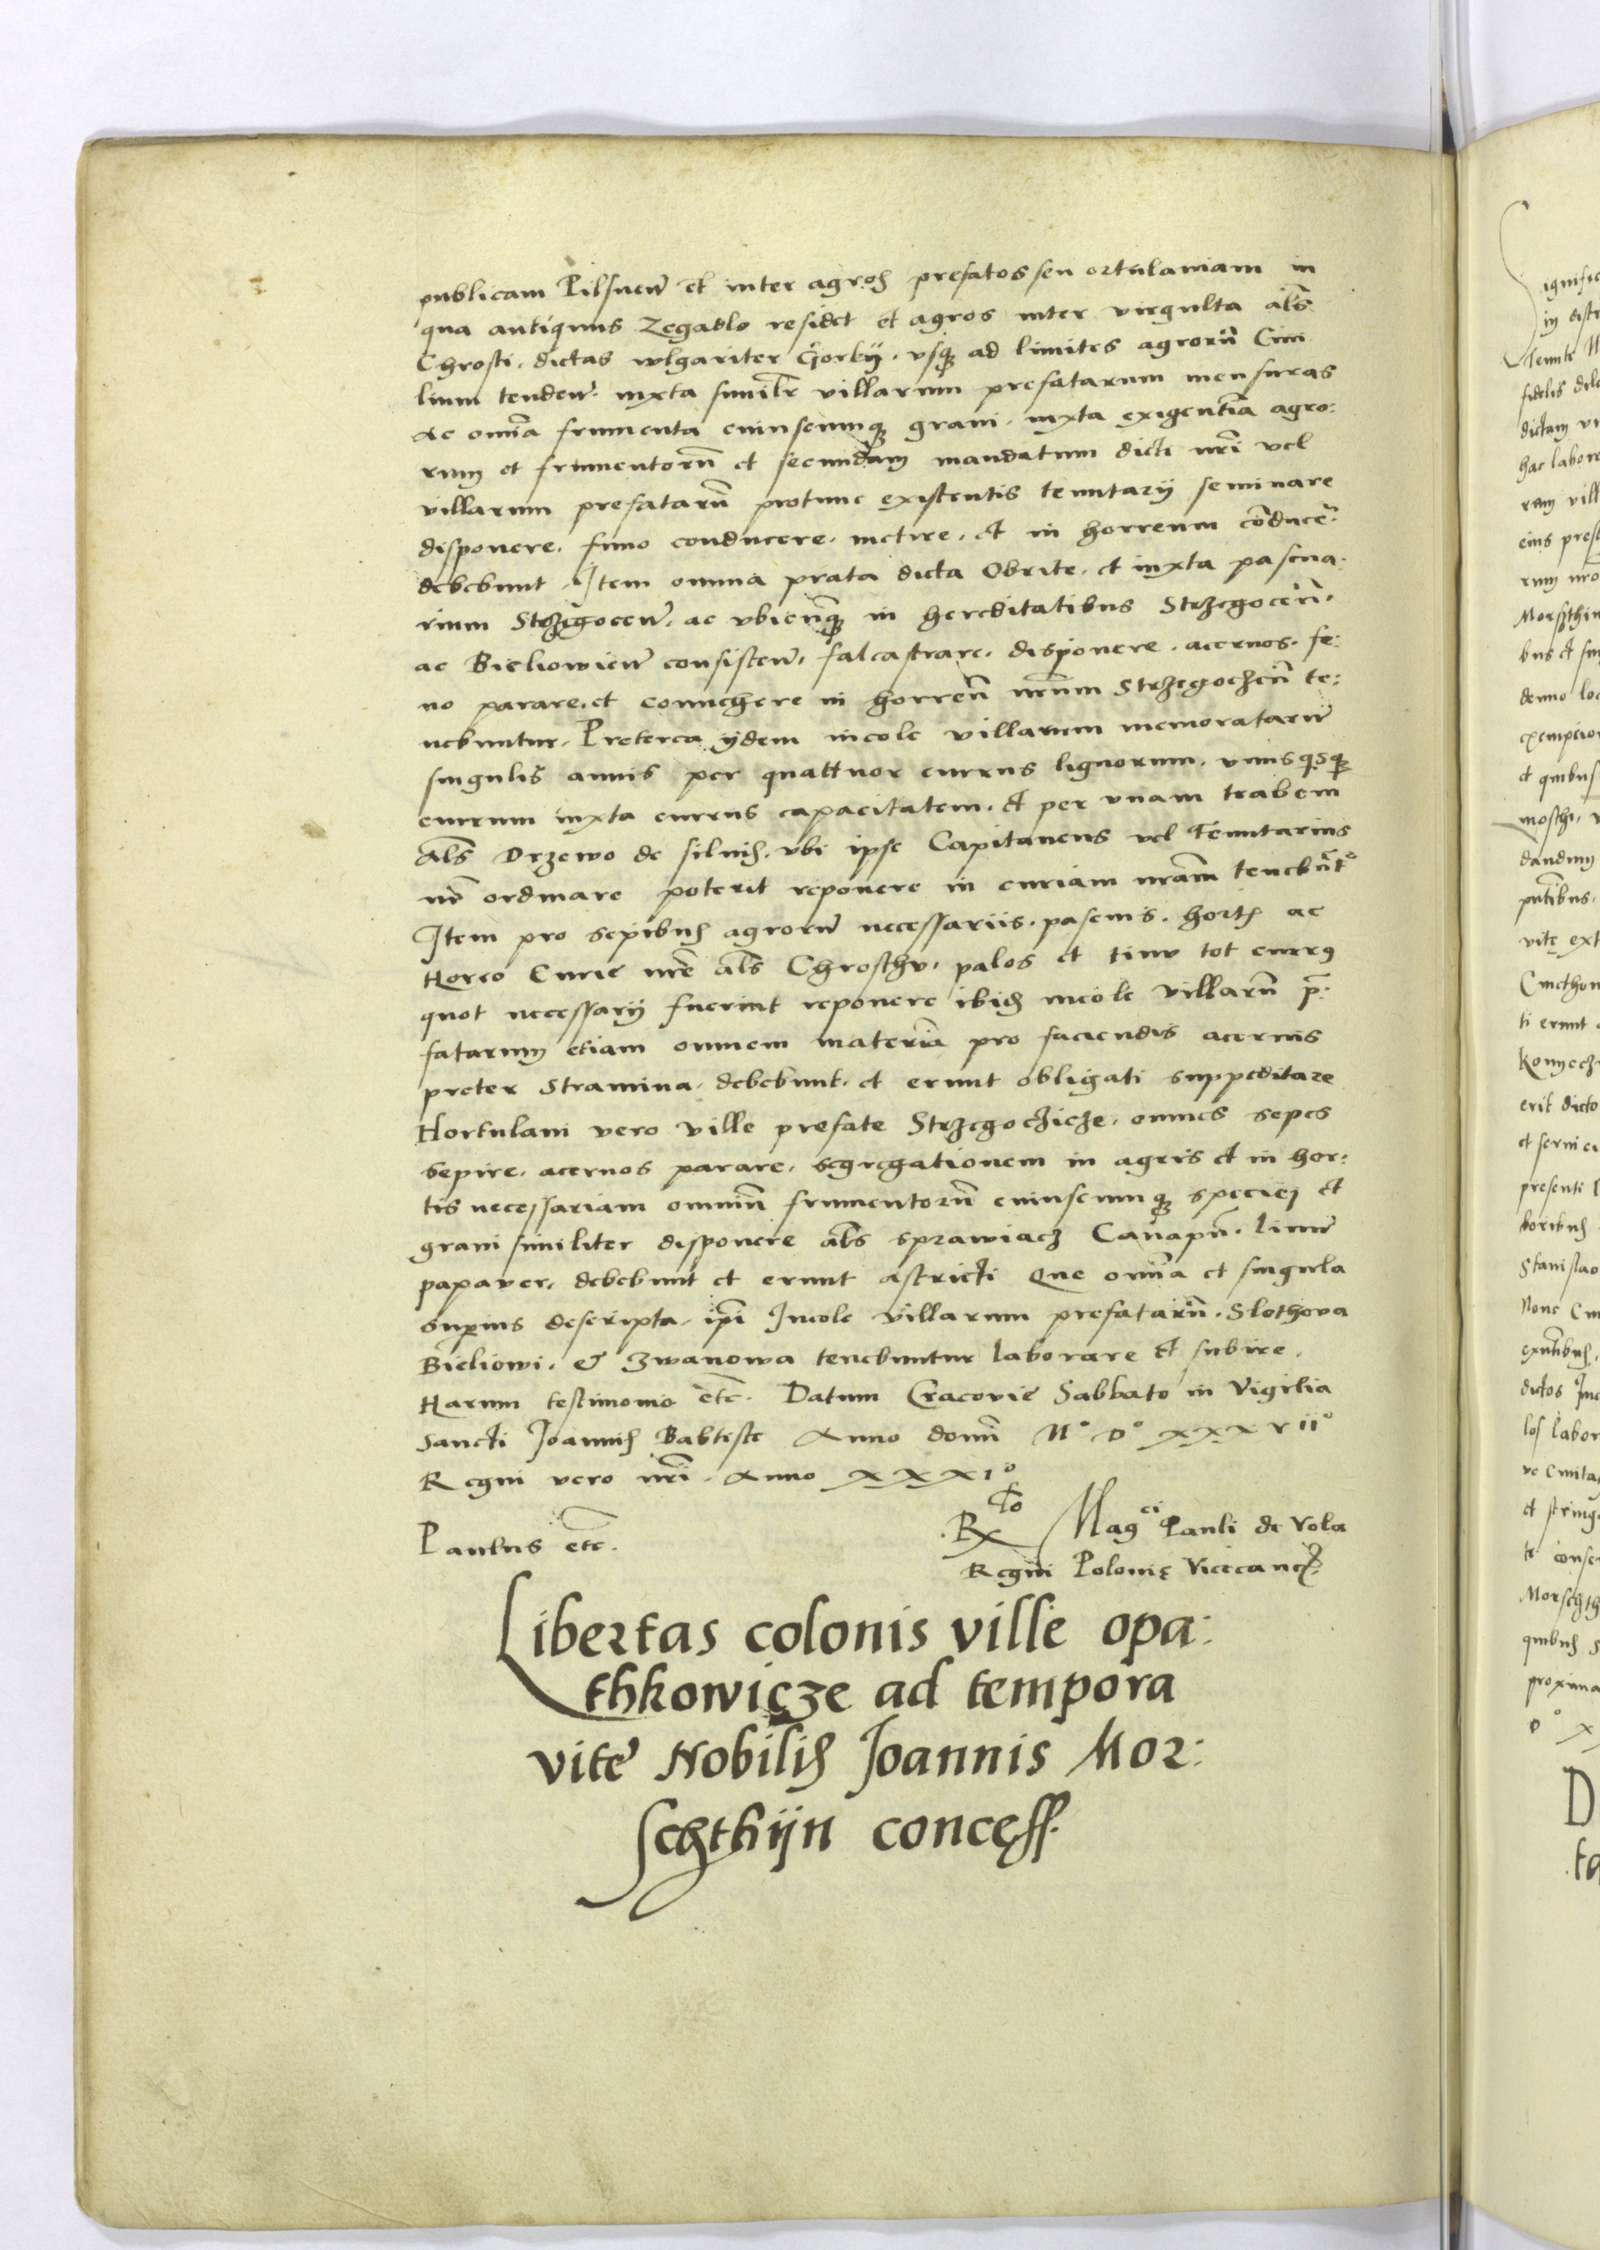 publicam Pilsnen̄ et inter agros prefatos seu ortulaniam in
qua antiquus Zegadlo residet et agros inter virgulta als̄
Chrosti, dictas wlgariter Gorkÿ, vsqȝ ad limites agrorū Cini
lium tenden̄. iuxta simil̄r villarum prefatarum mensuras
ac om̄ia frumenta cuiuscumqȝ grani, iuxta exigentiā agro:
rum et frumentorū et secundam mandatum dicti nr̄i vel
villarum prefatarū protunc existentis tenutarÿ seminare
disponere, fimo conducere, metire, et in horreum cōducēr̄.
debebunt. Item omnia prata dicta Obrite, et iuxta pascua:
rium Strzegocen̄, ac vbicūqȝ in hereditatibus Strzegocēn̄,
ac Bieliowien̄ consisten̄, falcastrare, disponere, aceruos, fe:
no parare, et conuehere in horreū nr̄um Strzegoczen̄ te:
nebuntur. Preterea ÿdem incole villarum memoratarū
singulis annis per quattuor currus lignorum, vnusqsqȝ
currum iuxta currus capacitatem, et per vnam trabem
als̄ Drzewo de siluis, vbi ipse Capitaneus vel Tenutarius
nr̄ ordinare poterit reponere in curiam nr̄am tenebūt̄
Item pro sepibus agrorū necessariis, pascuis, hortis ac
Horeo Curie nr̄e als̄ Chrosthu, palos et tinu tot currus
quot necessarÿ fuerint reponere ibid incole villarū p̄:
fatarum etiam omnem materiā pro faciendis aceruis
preter Stramina, debebunt, et erunt obligati suppeditare
Hortulani vero ville prefate Strzegoczicze, omnes sepes
sepire, aceruos parare, segregationem in agris et in hor:
tis necessariam omniū frumentorū cuiuscumqȝ speciei et
grani similiter disponere als̄ sprawiacz Canapū, linū
papauer, debebunt et erunt astricti Que om̄ia et singula
superius descripta, ip̄i Incole villarum prefatarū, Slothova
Bieliowi, & Zwanowa tenebuntur laborare et subire,
Harum testimonio etc̄. Datum Cracovie Sabbato in Vigilia
Sancti Joannis Babtiste Anno domī M° D° XXXVII°
Regni vero nr̄i. Anno XXXI°
Paulus etc̄.
Rᵗⁱᵒ Magᶜⁱ Pauli de Vola
Regni Polonię Vicecanc̄.
Libertas colonis ville opa:
thkowicze ad tempora
vite Nobilis Joannis Mor:
schthÿn concęss.